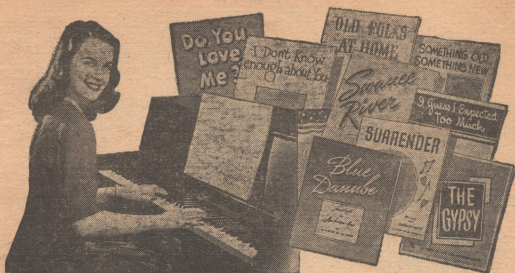 Do You
Love
Me?
I Don't Know
enough about You
OLD FOLKS
AT HOME
SOMETHING OLD
SOMETHING NEW
Swanee
River
I Guess I Expected
Too Much
SURRENDER
Blue
Danube
THE
GYPSY